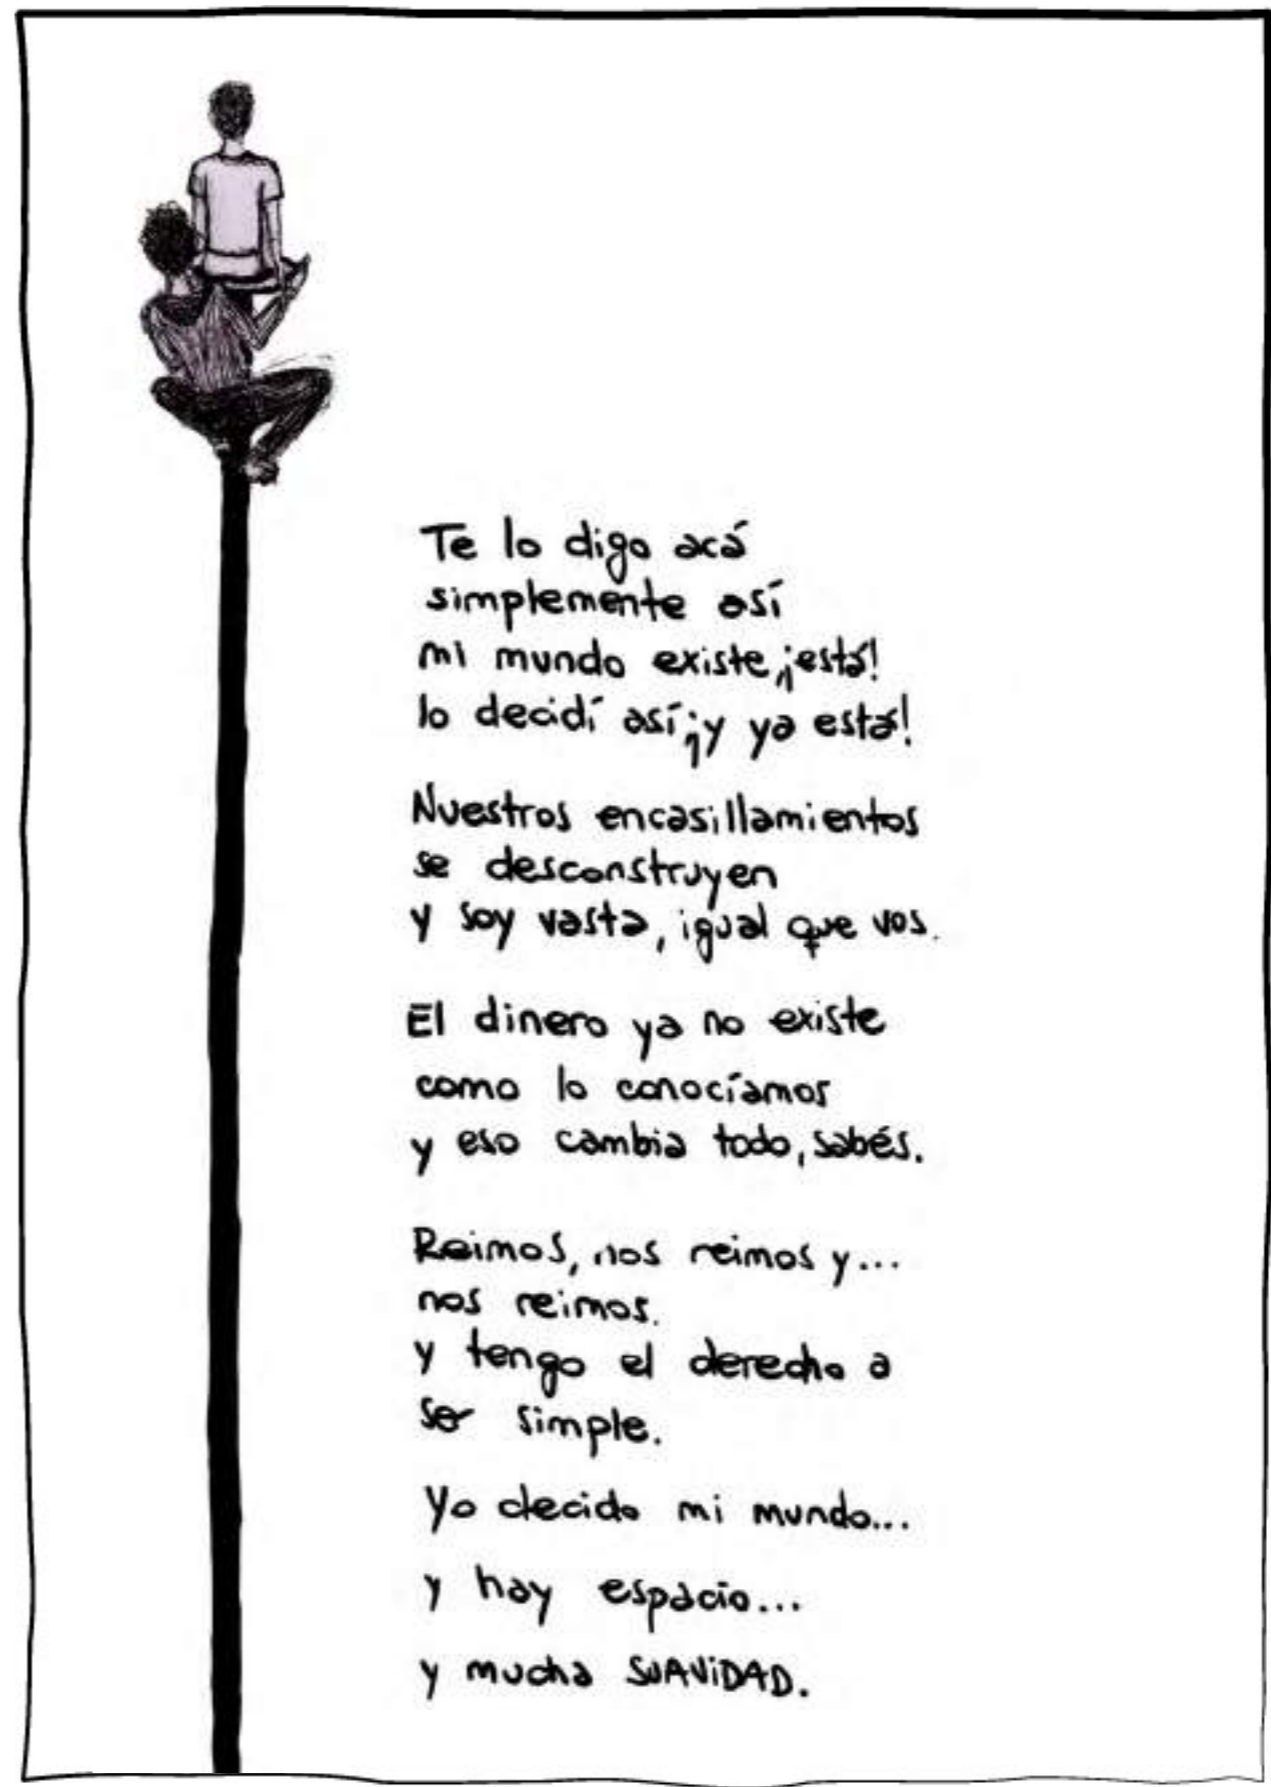 Te lo digo acá
simplemente así
mi mundo existe, ¡está!
lo decidí así, ¡y ya está!
Nuestros encasillamientos
se desconstruyen
y soy vasta, igual que vos.
El dinero ya no existe
como lo conocíamos
y eso cambia todo, sabés.
Reimos, nos reimos y...
nos reimos.
y tengo el derecho a
ser simple.
Yo decido mi mundo...
y hay espacio...
y mucha SUAVIDAD.